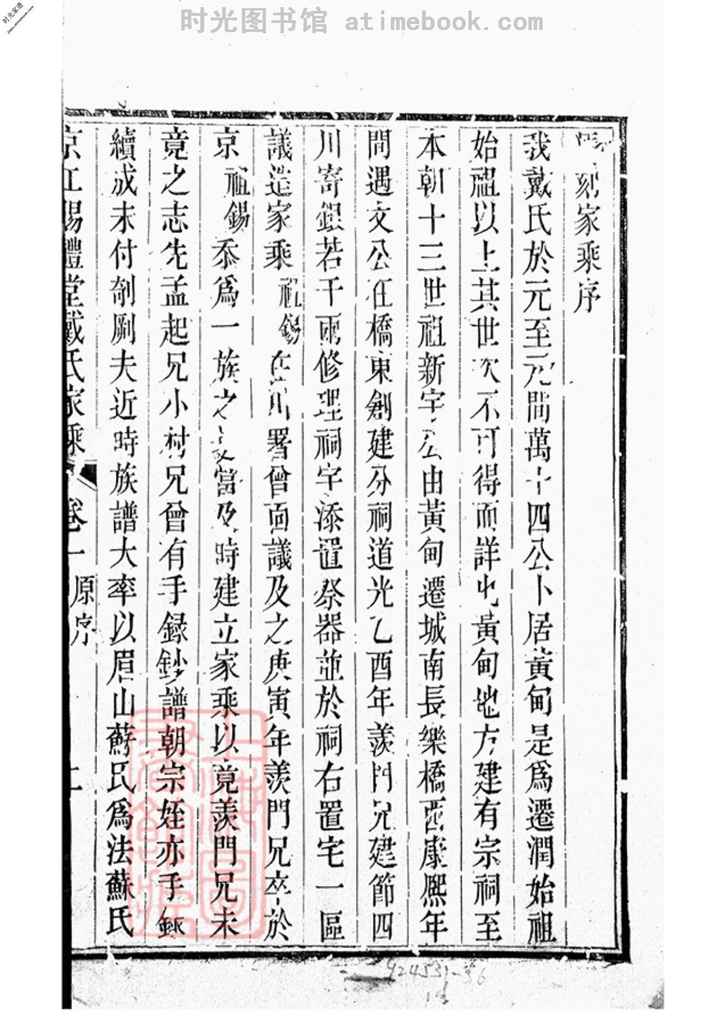 时光图书馆 atimebook.com
刻家乘序
我戴氏於元至元間萬十四公卜居黃甸是為遷潤始祖
始祖以上其世次不可得而詳也黃甸地方建有宗祠至
本朝十三世祖新宇公由黃甸遷城南長樂橋西康熙年
間遇文公在橋東創建分祠道光乙酉年羨門兄建節四
川寄銀若干兩修理祠宇添置祭器並於祠右置宅一區
議造家乘祖錫在 署曾面議及之庚寅年羨門兄卒於
京祖錫忝為一族之 當及時建立家乘以竟羨門兄未
竟之志先孟起兄小村兄曾有手録鈔譜朝宗姪亦手
續成未付剞劂夫近時族譜大率以眉山蘇氏為法蘇氏
京江錫禮堂戴氏家乘 卷一 原序
924531-36